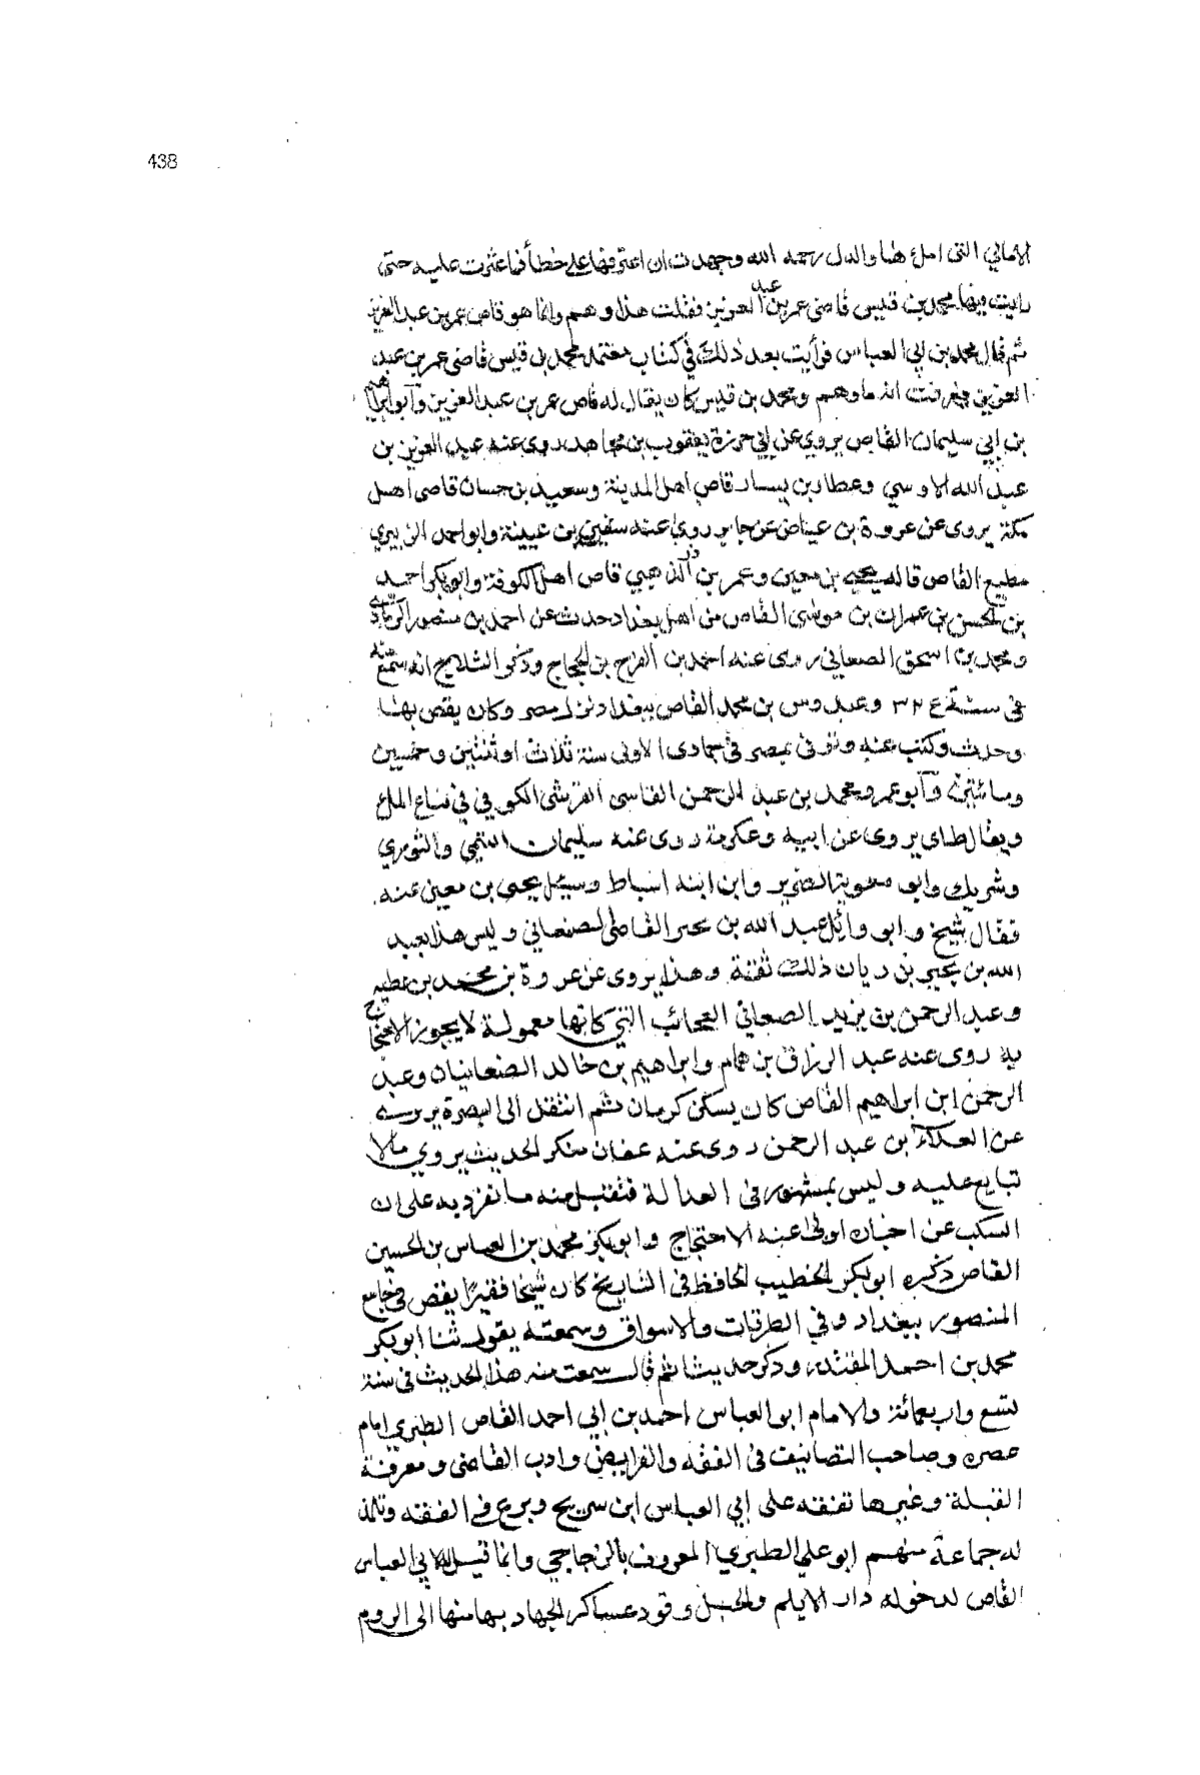 438
الامالي التى املاها والدى رحمه الله وجهدت ان اعترفيها على خطأ فما عثرت عليه حتى
رايت فيها محمد بن قيس قاضى عمر بن عبد العزيز فقلت هذا وهم وانما هو قاص عمر بن عبد العزيز
ثم قال محمد بن ابي العباس فرأيت بعد ذلك في كتاب معتمد محمد بن قيس قاضى عمر بن عبد
العزيز فعرفت انه ما وهم ومحمد بن قيس كان يقال له قاص عمر بن عبد العزيز وابو ابراهيم
بن ابي سليمان القاص يروي عن ابي حزرة يعقوب بن مجاهد روى عنه عبد العزيز بن
عبد الله الاوسي وعطا بن يسار قاص اهل المدينة وسعيد بن حسان قاصى اهل
مكة يروى عن عروة بن عياض عن جابر روى عنه سفين بن عيينة وابو احمد الزبيري
مطيع القاص قاله يحيى بن معين وعمر بن ذر الذهبي قاص اهل الكوفة وابو بكر احمد
بن الحسن بن عمران بن موسى القاص من اهل بغداد حدث عن احمد بن منصور الرمادى
ومحمد بن اسحق الصعاني روى عنه احمد بن الفرج بن الحجاج وذكر الثلاج انه سمع منه
فى سنة ٣٢ وعبدوس بن محمد القاص ببغداد نزل مصر وكان يقص بها
وحدث وكتب عنه وتوفى بمصر في جمادى الاولى سنة ثلاث او ثنتين وخمسين
ومائتين وابو عمرو محمد بن عبد الرحمن القاسى القرشى الكوفي في بياع الملع
ويقال طاى يروى عن ابيه وعكرمة روى عنه سليمان التيمي والثوري
وشريك وابو معوية الضرير وابن ابنه اسباط وسيل يحيى بن معين عنه
فقال شيخ وابو وائل عبد الله بن بحير القاص الصنعاني وليس هذا بعبد
الله بن بحير بن ريان ذلك ثقة وهذا يروى عن عروة بن محمد بن عطيه
وعبد الرحمن بن يزيد الصعاني العجائب التي كانها معمولة لا يجوز الاحتجاج
به روى عنه عبد الرزاق بن همام وابراهيم بن خالد الصنعانيان وعبد
الرحمن ابن ابراهيم القاص كان يسكن كرمان ثم انتقل الى البصرة يروى
عن العلاء بن عبد الرحمن روى عنه عفان منكر الحديث يروي مالا
تبايع عليه وليس بمشهور فى العدالة فتقبل منه ما انفرد به على ان
السكب عن اخباره اولى عنه الاحتجاج وابو بكر محمد بن العباس بن الحسين
القاص ذكره ابو بكر الخطيب الحافظ فى التاريخ كان شيخا فقيرا يقص فى جامع
المنصور ببغداد وفي الطرقات والاسواق وسمعته يقول ثنا ابو بكر
محمد بن احمد المفيد وذكر حديثا ثم قال سمعت منه هذا الحديث فى سنة
تسع واربعمائة والامام ابو العباس احمد بن ابي احمد القاص الطبري امام
عصره وصاحب التصانيف في الفقه والفرايض وادب القاضى ومعرفة
القبلة وغيرها تفقه على ابي العباس ابن سريج وبرع في الفقه وتلمذ
له جماعة منهم ابو علي الطبري المعروف بالزجاجي وانما قيل لابي العباس
القاص لدخوله دار الايلم والجبل وقود عساكر الجهاد بها منها الى الروم